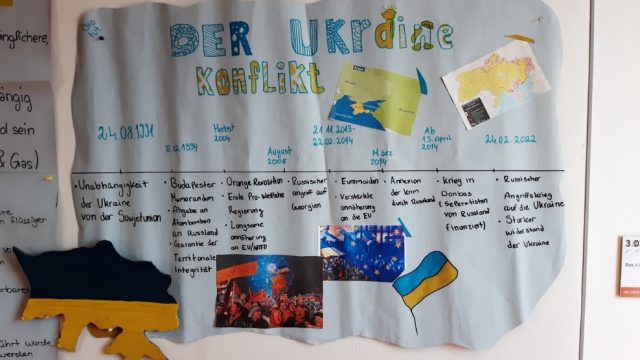 DER UKRaine
KONFLIKT
24.08.1991
5.12.1994
Herbst
2004
August
2008
21.11.2013-
22.02.2014
März
2014
Ab
13. April
2014
24.02.2022
• Unabhängigkeit
der Ukraine
von der Sowjetunion
• Budapester
Memorandum
• Abgabe an
Atombomben
an Russland
• Garantie der
Territoriale
Integrität
• Orange Revolution
• Erste Pro-Westliche
Regierung
• Langsame
annäherung
an EU/NATO
• Russischer
angriff auf
Georgien
• Euromaidan
• Verstärkte
annäherung
an die EU
• Annexion
der Krim
durch Russland
• Krieg in
Donbas
(Seperatisten
von Russland
finanziert)
• Russischer
Angriffskrieg
auf die Ukraine
• Starker
widerstand
der Ukraine
nglichere,
ngig
d sein
& Gas)
flüssiger
rbaren
ührt wurde
werden
3.0